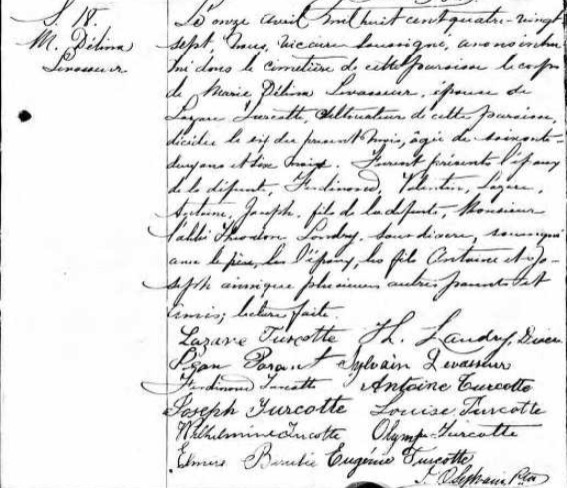 S. 18.
M. Délina
Levasseur
Le onze avril mil huit cent quatre-vingt
sept, nous, vicaire soussigné, avons inhu
mé dans le cimetière de cette paroisse le corps
de Marie Délina Levasseur, épouse de
Lazare Turcotte, cultivateur de cette paroisse,
décédée le six du présent mois, âgée de soixante-
deux ans et six mois. Furent présents l'époux
de la défunte, Ferdinand, Valentin, Lazare,
Antoine, Joseph, fils de la défunte, Monsieur
l'abbé Landry, sous-diacre, soussigné
avec le père, l'époux, les fils Antoine et Jo-
seph ainsi que plusieurs autres parents et
amis; lecture faite.
Lazare Turcotte Th. Landry,
Parent Sylvain Levasseur
Ferdinand Turcotte Antoine Turcotte
Joseph Turcotte Louise Turcotte
Wilhelmine Turcotte Olympe Turcotte
Elmire Eugénie Turcotte
J. O. Ptre